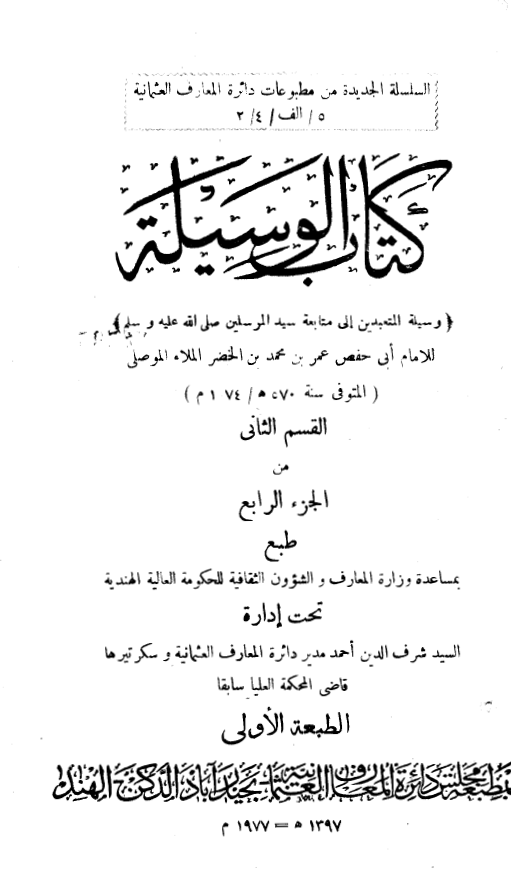 السلسلة الجديدة من مطبوعات دائرة المعارف العثمانية
٥ / الف / ٤ / ٢
كتاب الوسيلة
﴿ وسيلة المتعبدين إلى متابعة سيد المرسلين صلى الله عليه و سلم ﴾
للامام أبى حفص عمر بن محمد بن الخضر الملاء الموصلى
( المتوفى سنة ٥٧٠ ھ / ١١٧٤ م )
القسم الثانى
من
الجزء الرابع
طبع
بمساعدة وزارة المعارف و الشؤون الثقافية للحكومة العالية الهندية
تحت إدارة
السيد شرف الدين أحمد مدير دائرة المعارف العثمانية و سكرتيرها
قاضى المحكمة العليا سابقا
الطبعة الأولى
بمطبعة مجلس دائرة المعارف العثمانية بحيدر آباد الدكن الهند
١٣٩٧ ھ = ١٩٧٧ م